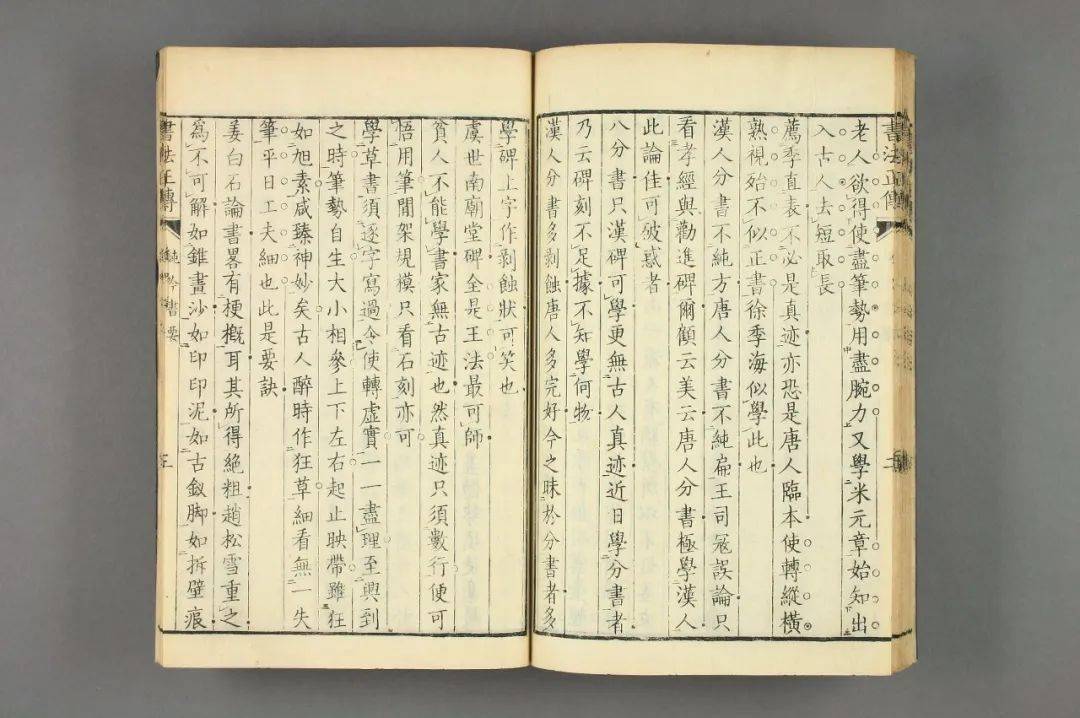 書法正傳
老人欲得使盡筆勢用盡腕力又學米元章始知出
入古人去短取長
薦季直表不必是真迹亦恐是唐人臨本使轉縱橫
熟視殆不似正書徐季海似學此也
漢人分書不純方唐人分書不純扁王司寇誤論只
看孝經與勸進碑爾顧云美云唐人分書極學漢人
此論佳可破惑者
八分書只漢碑可學更無古人真迹近日學分書者
乃云碑刻不足據不知學何物
漢人分書多剥蝕唐人多完好今之昧於分書者多
學碑上字作剥蝕狀可笑也
虞世南廟堂碑全是王法最可師
貧人不能學書家無古迹也然真迹只須數行便可
悟用筆間架規模只看石刻亦可
學草書須逐字寫過令使轉虚實一一盡理至興到
之時筆勢自生大小相參上下左右起止映帶雖狂
如旭素咸臻神妙矣古人醉時作狂草細看無一失
筆平日工夫細也此是要訣
姜白石論書畧有梗概耳其所得絶粗趙松雪重之
為不可解如錐畫沙如印印泥如古釵脚如拆壁痕
書法正傳 鈍吟書要